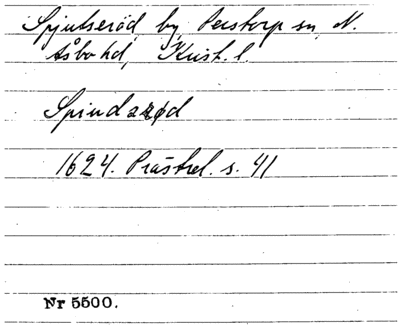 Spjutseröd by, Perstorp sn, N.
Åsbo hd, Krist. l.
Spindazød
1624. Prästrel. s. 41
Nr 5500.